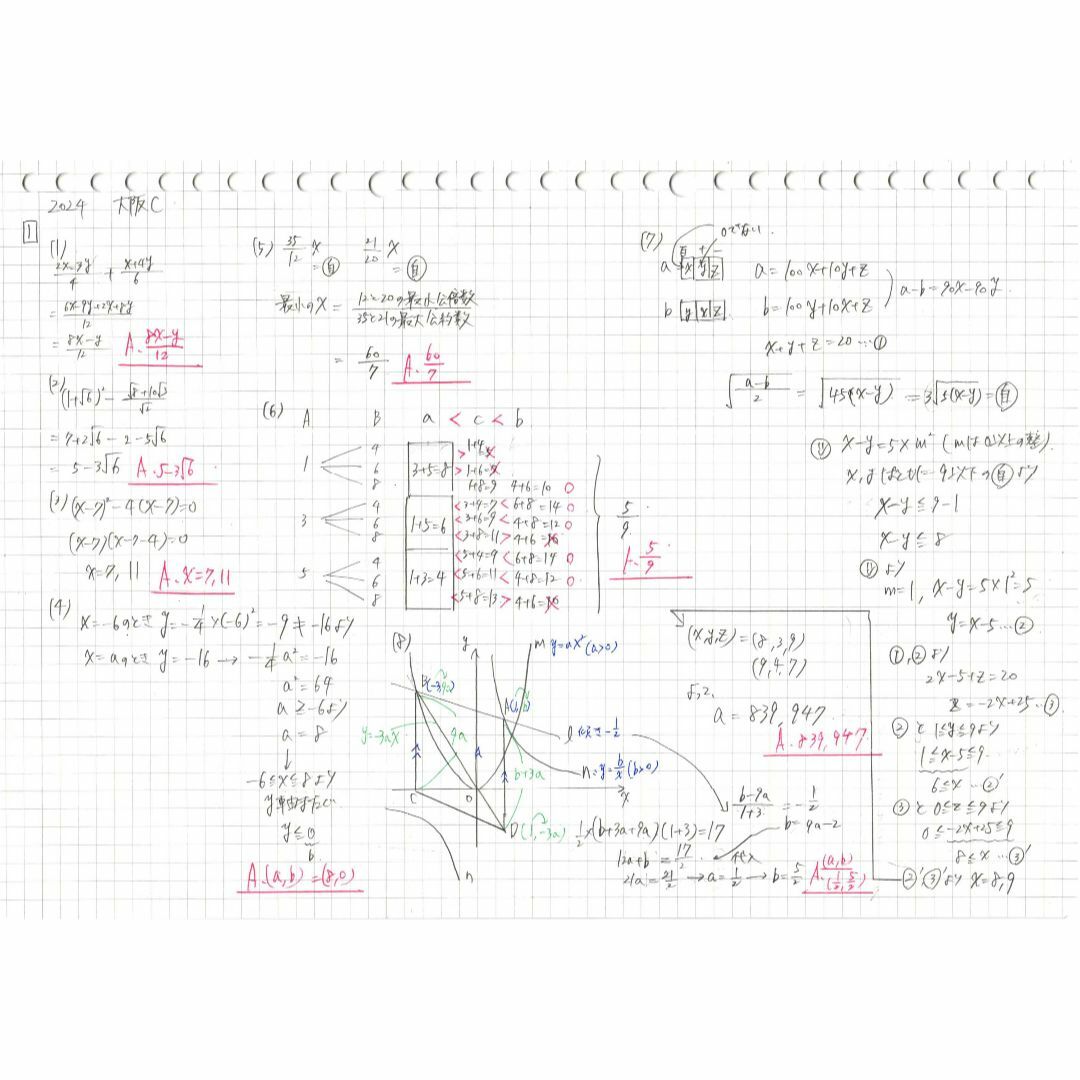 2024 大阪C
1
(1)
2x-3y/4 + x+4y/6
= 6x-9y+2x+8y/12
= 8x-y/12 A. 8x-y/12
(2) (1+√6)² - √8+10√3/√2
= 7+2√6 - 2-5√6
= 5-3√6 A. 5-3√6
(3) (x-7)²-4(x-7)=0
(x-7)(x-7-4)=0
x=7, 11 A. x=7, 11
(4)
x=-6のとき y=-1/4×(-6)²=-9≠-16より
x=aのとき y=-16 → -1/4a²=-16
a²=64
a≧-6より
a=8
↓
-6≦x≦8より
y≦0
b
A. (a,b)=(8,0)
(5) 35/12 x = 自 21/20 x = 自
最小のx = 12と20の最小公倍数/35と21の最大公約数
= 60/7 A. 60/7
(6) A B a < c < b
1 4 3+5=8 > 1+4=5
6 > 1+6=7
8 1+8=9 4+6=10 ○
3 4 1+5=6 < 3+4=7 < 6+8=14 ○
6 < 3+6=9 < 4+8=12 ○
8 < 3+8=11 > 4+6=10
5 4 1+3=4 < 5+4=9 < 6+8=14 ○
6 < 5+6=11 < 4+8=12 ○
8 < 5+8=13 > 4+6=10
5/9
A. 5/9
(7) 0でない
百 十 一
a x y z a=100x+10y+z
b y x z b=100y+10x+z
a-b=90x-90y
x+y+z=20…①
√a-b/2 = √45(x-y) = 3√5(x-y) = 自
x-y=5×m²
x-y≦9-1
x-y≦8
より
m=1, x-y=5×1²=5
y=x-5…②
①,②より
2x-5+z=20
z=-2x+25…③
②と1≦y≦9より
1≦x-5≦9
6≦x…②'
③と0≦z≦9より
0≦-2x+25≦9
8≦x…③'
②'③'より x=8,9
(x,y,z)=(8,3,9)
(9,4,7)
よって、
a=839, 947
A. 839, 947
(8) y m y=ax²(a>0)
B(-3,9a)
A(1,b)
y=-3ax 9a l 傾き-1/2
b+3a n=y=b/x(b>0)
C O x
D(1,-3a)
n
b-9a/1+3 = -1/2
b=9a-2
1/2×(b+3a+9a)(1+3)=17
12a+b=17/2 代入
21a=21/2 → a=1/2 → b=5/2 A. (a,b) (1/2, 5/2)